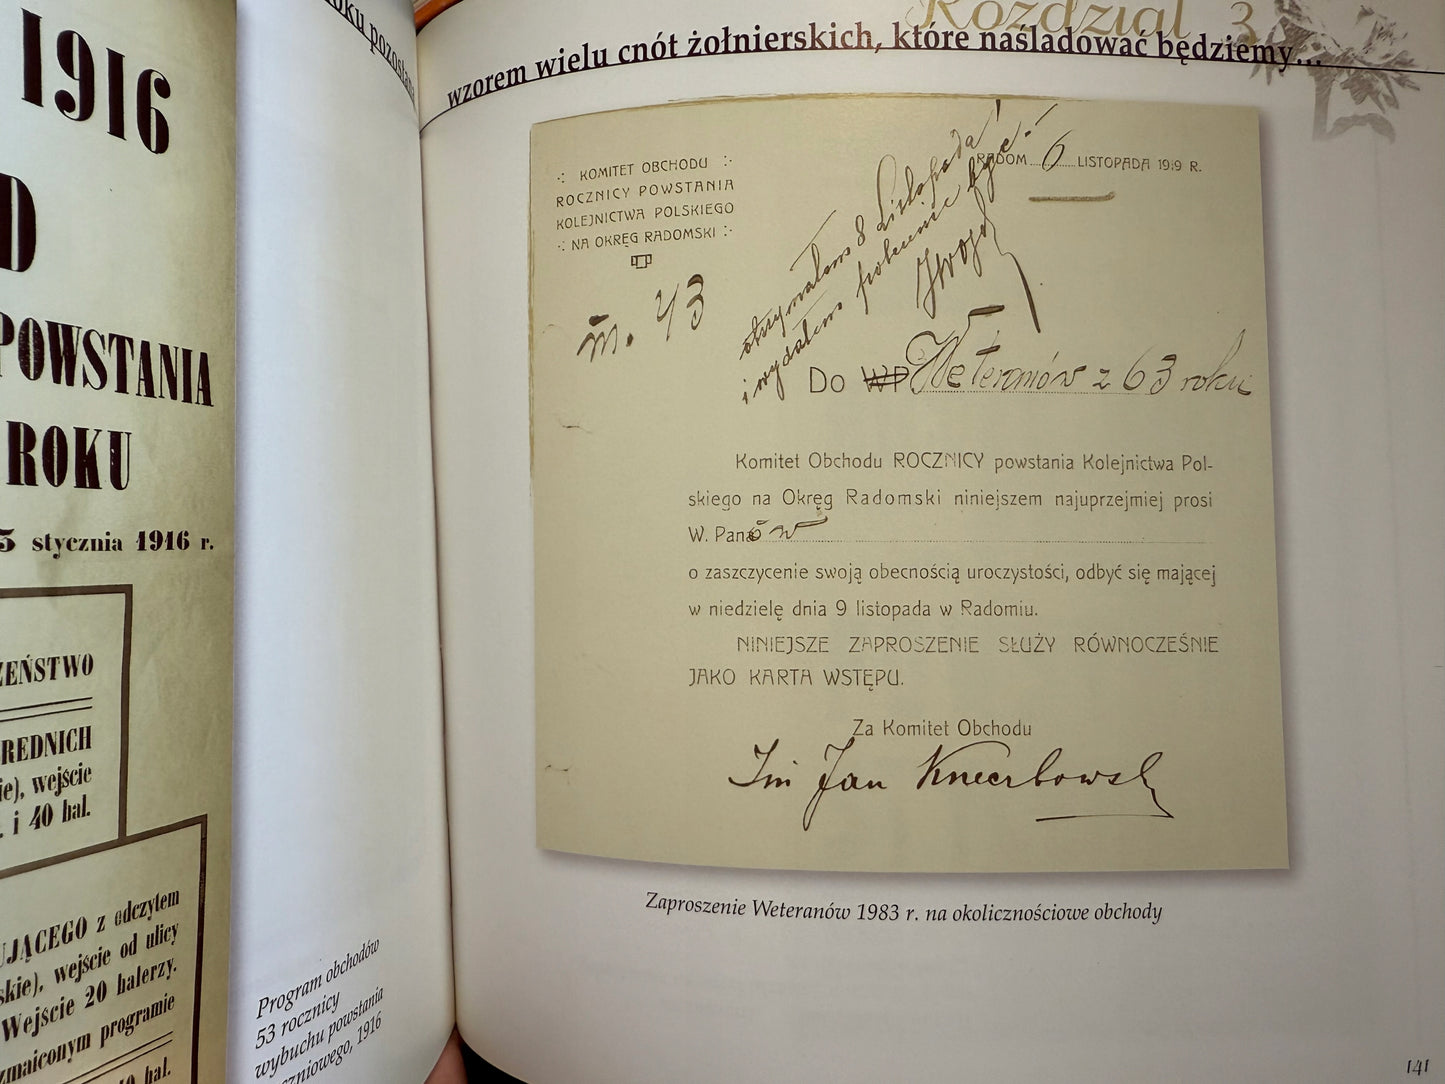 1916
D
POWSTANIA
ROKU
5 stycznia 1916 r.
ZEŃSTWO
REDNICH
ie), wejście
. i 40 hal.
UJĄCEGO z odczytem
skie), wejście od ulicy
Wejście 20 halerzy.
zmaiconym programie
40 hal.
oku pozostaną
Program obchodów
53 rocznicy
wybuchu powstania
czniowego, 1916
Rozdział 3
wzorem wielu cnót żołnierskich, które naśladować będziemy...
KOMITET OBCHODU
ROCZNICY POWSTANIA
KOLEJNICTWA POLSKIEGO
NA OKRĘG RADOMSKI
RADOM 6 LISTOPADA 1919 R.
m. 43
otrzymałem 8 Listopada!
i wydałem polecenie
Do WP Weteranów z 63 roku
Komitet Obchodu ROCZNICY powstania Kolejnictwa Pol-
skiego na Okręg Radomski niniejszem najuprzejmiej prosi
W. Panów
o zaszczycenie swoją obecnością uroczystości, odbyć się mającej
w niedzielę dnia 9 listopada w Radomiu.
NINIEJSZE ZAPROSZENIE SŁUŻY RÓWNOCZEŚNIE
JAKO KARTA WSTĘPU.
Za Komitet Obchodu
Jan
Zaproszenie Weteranów 1983 r. na okolicznościowe obchody
141